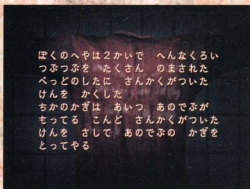 ぼくのへやは２かいで　へんなくろい
つぶつぶを　たくさん　のまされた
べっどのしたに　さんかくがついた
けんを　かくした
ちかのかぎは　あいつ　あのでぶが
もってる　こんど　さんかくがついた
けんを　さして　あのでぶの　かぎを
とってやる